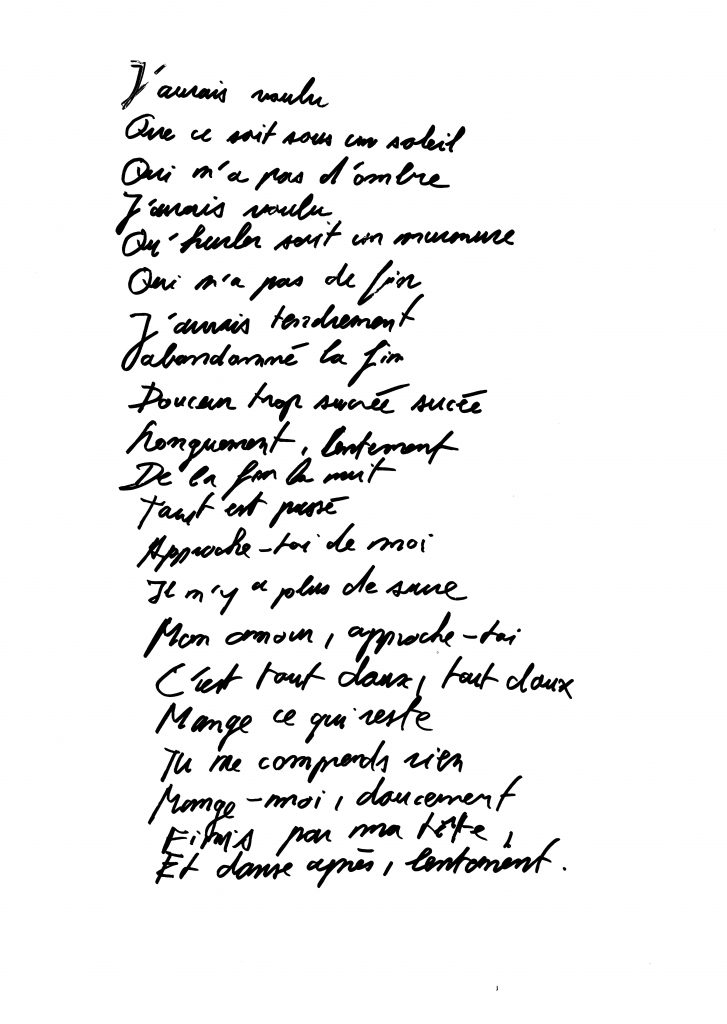 J'aurais voulu
Que ce soit sous un soleil
Qui n'a pas d'ombre
J'aurais voulu
Qu'hurler soit un murmure
Qui n'a pas de fin
J'aurais tendrement
abandonné la fin
Douceur trop sucrée sucée
Longuement, lentement
De la fin la nuit
Tant est passé
Approche-toi de moi
Il n'y a plus de sucre
Mon amour, approche-toi
C'est tout doux, tout doux
Mange ce qui reste
Tu ne comprends rien
Mange-moi, doucement
Finis par ma tête,
Et danse après, lentement.